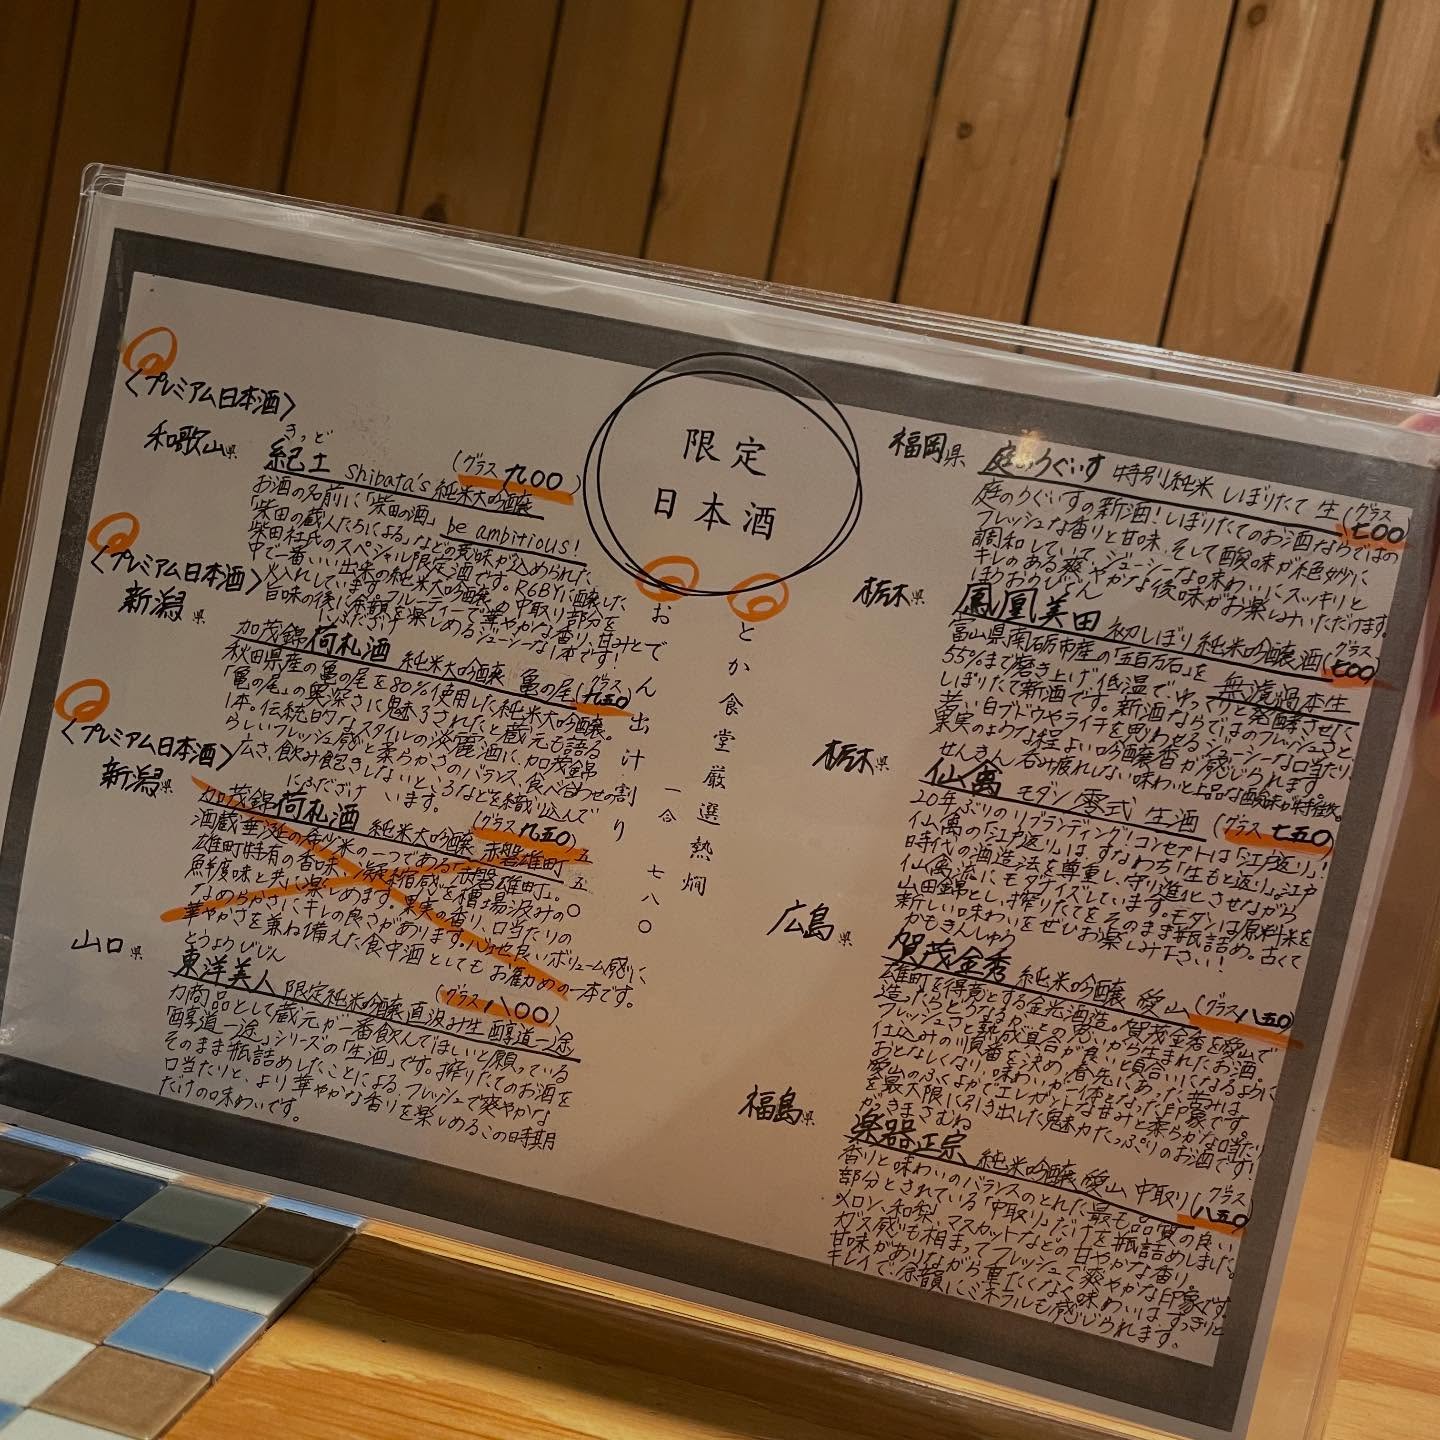 限定
日本酒
〈プレミアム日本酒〉
和歌山県
きっど
紀土 Shibata's 純米大吟醸
(グラス 九〇〇)
be ambitious!
お酒の名前に「柴田の酒」
「柴田の蔵人たちによる」などの意味が込められた、
柴田杜氏のスペシャル限定酒です。RGBYに醸した
中で一番いい出来の純米大吟醸の中取り部分を
火入れしています。フルーティーで華やかな香り、甘みと
旨味の後に余韻を楽しめるジューシーな1本です!
〈プレミアム日本酒〉
新潟県
にふだざけ
加茂錦 荷札酒 純米大吟醸 亀の尾 (グラス 九五〇)
秋田県産の亀の尾を80%使用した純米大吟醸。
「亀の尾」の奥深さに魅了されたと蔵元も語る
1本。伝統的なスタイルの淡麗酒に、加茂錦
らしいフレッシュ感と柔らかさのバランス、食べ合わせの
広さ、飲み飽きしないところなどを織り込んで
います。
〈プレミアム日本酒〉
新潟県
にふだざけ
加茂錦 荷札酒 純米大吟醸 赤磐雄町
(グラス 九五〇)
酒蔵垂涎の希少米の一つである「赤磐雄町」。
雄町特有の香味、凝縮感を槽場汲みの
鮮度味と共に楽しめます。果実の香り、口当たりの
なめらかさにキレの良さがあります。心地良いボリューム感に
華やかさを兼ね備えた食中酒としてもお勧めの一本です。
山口県
とうようびじん
東洋美人 限定純米吟醸 直汲み生 醇道一途
(グラス 八〇〇)
力商品として蔵元が一番飲んでほしいと願っている
「醇道一途」シリーズの「生酒」です。搾りたてのお酒を
そのまま瓶詰めしたことによる、フレッシュで爽やかな
口当たりと、より華やかな香りを楽しめるこの時期
だけの味わいです。
とか食堂厳選熱燗
おでん出汁割り
一合 七八〇
五五〇
福岡県
庭のうぐいす 特別純米 しぼりたて 生 (グラス 七〇〇)
庭のうぐいすの新酒!しぼりたてのお酒ならではの
フレッシュな香りと甘味、そして酸味が絶妙に
調和していて、ジューシーな味わいにスッキリと
キレのある爽やかな後味がお楽しみいただけます。
栃木県
ほうおうびでん
鳳凰美田 初しぼり 純米吟醸酒 (グラス 七〇〇)
無濾過本生
富山県南砺市産の「五百万石」を
55%まで磨き上げ、低温でゆっくりと発酵させた
しぼりたて新酒です。新酒ならではのフレッシュさと、
若い白ブドウやライチを思わせるジューシーな口当たり、
果実のような程よい吟醸香が感じられます。
呑み疲れしない味わいと上品な酸味が特徴。
栃木県
せんきん
仙禽 モダン 零式 生酒 (グラス 七五〇)
20年ぶりのリブランディング!コンセプトは「江戸返り」!
仙禽の「江戸返り」は、すなわち「生もと返り」。江戸
時代の酒造法を尊重し、守り進化させながら
仙禽流にモダナイズしています。モダンは原料米を
山田錦とし、搾りたてをそのまま瓶詰め。古くて
新しい味わいをぜひお楽しみ下さい!
広島県
かもきんしゅう
賀茂金秀 純米吟醸 愛山 (グラス 八五〇)
雄町を得意とする金光酒造。賀茂金秀を愛山で
造ったらどうなる?との思いから生まれたお酒。
フレッシュさと熟成具合が良い具合いになるように
仕込みの順番を決め、春先にあった苦みは
おとなしくなり、味わいが一体となった印象です。
愛山のふくよかでエレガントな甘みと柔らかな口当たり
を最大限に引き出した魅力たっぷりのお酒です!
福島県
がっきまさむね
楽器正宗 純米吟醸 愛山 中取り (グラス 八五〇)
香りと味わいのバランスのとれた最も品質の良い
部分とされている「中取り」だけを瓶詰めしました。
メロン、和梨、マスカットなどの甘やかな香り。
ガス感も相まってフレッシュで爽やかな印象です。
甘味がありながら重たくなく味わいはすっきりと
キレイで、余韻にミネラルも感じられます。